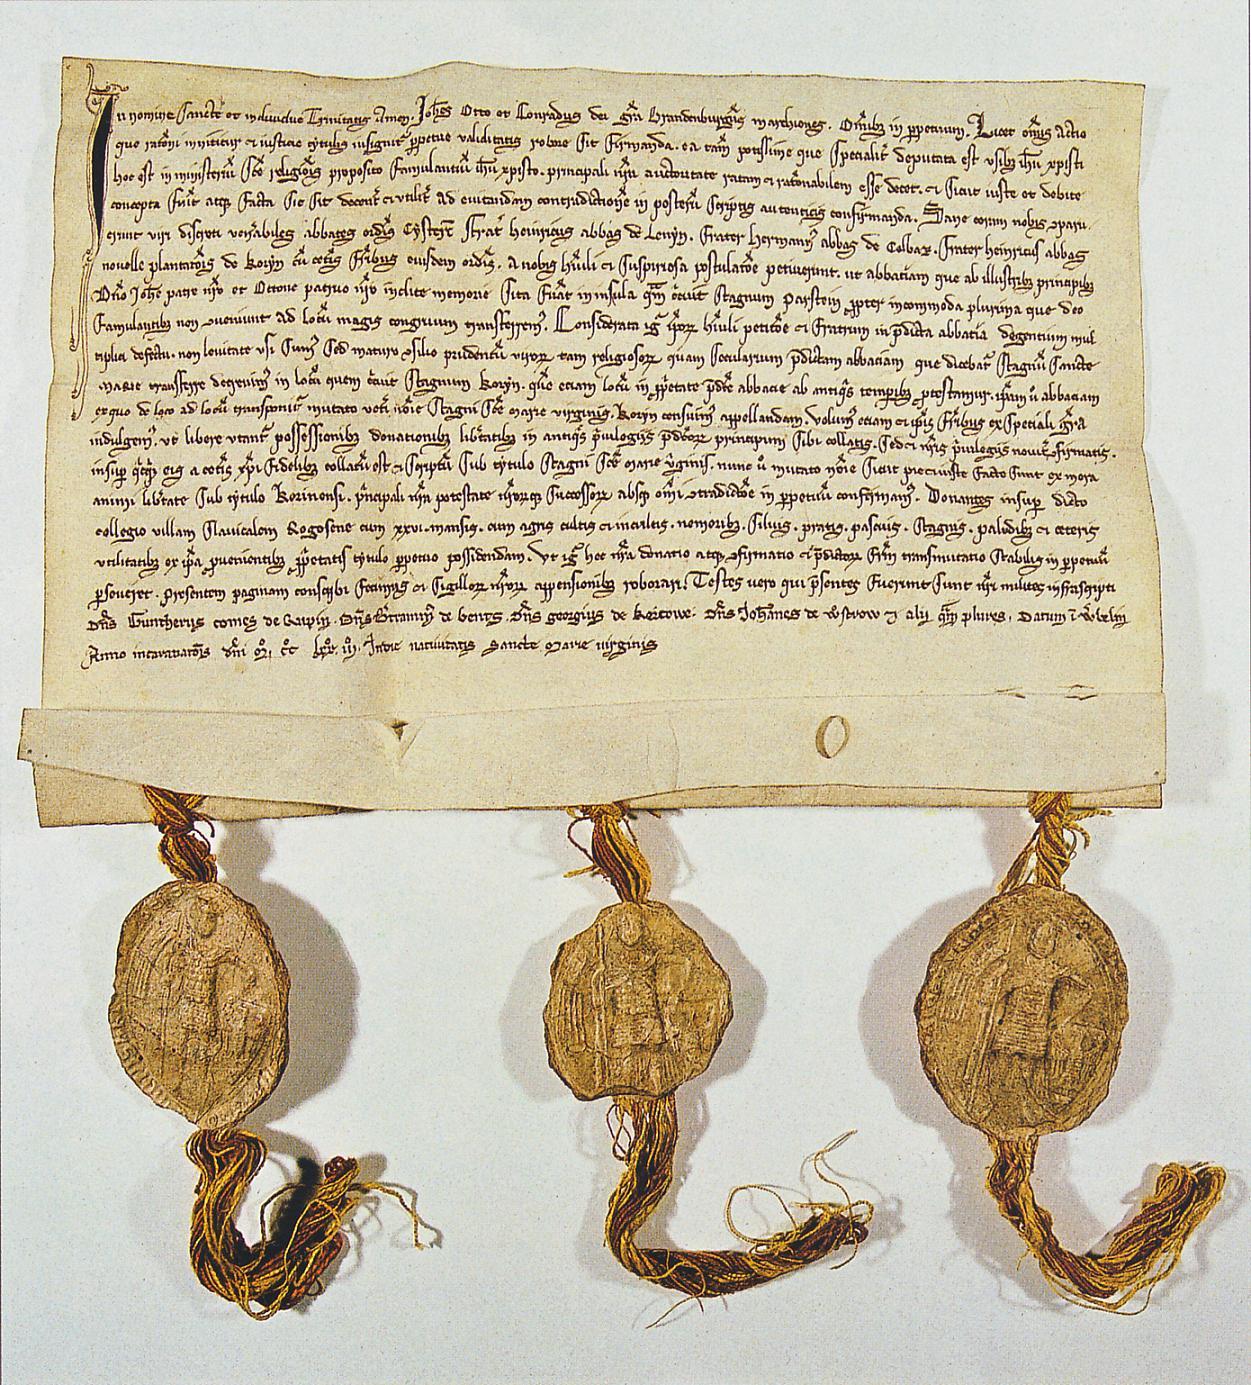 In nomine sancte et individue Trinitatis Amen. Johẽs Otto et Conradus dei grã Brandenburgẽs marchiones. Omĩb3 in ppetuum. Licet omĩs actio
que ratõni innititur et iusticie tytulis insignitr̃ ppetue validitatis robore sit firmanda. ea tam̃ potissime que specialit̃ deputata est usib3 ihũ xpisti
hoc est in ministeriũ sc̃e religiõis proposito famulantiũ ihũ xpisto. principali nr̃a auctoritate ratam et ratõnabilem esse decet. et sicut iuste et debite
concepta fuit atq3 facta sic sit decens et utilis ad evitandam contradictionẽ in posterũ scriptis autenticis confirmanda. Sane coram nobis cparu
erunt viri discreti ven̾abiles abbates ordĩs Cysterc̃ frat̃ Heinricus abbas de Lenyn. Frater Hermann9 abbas de Colbaz. Frater Heinricus abbas
novelle plantatõis de Koryn cũ cet̾is fr̃ib3 eiusdem ordĩs. a nobis hũili et suspiriosa postulatõe petiverunt. ut abbatiam que ab illustrib3 principib3
Dño Johẽ patre nr̃o et Ottone patruo nr̃o inclite memorie sita fũat in insula qm̃ circuit stagnum Parstein ppter incommoda plurima que deo
famulantib3 non cveniunt ad locũ magis congruum transferrem9. Considerata ig̾ ip̃or̃ hũili petitõe et fratrum in p̃dicta abbatia degentium mul
tiplici defectu. non levitate usi sum9 sed maturo csilio prudentũ viror̃ tam religiosor̃ quam secularium p̃dictam abbatiam que dicebat̾ stagnũ sancte
Marie transferre decrevim9 in locũ quem circuit stagnum Koryn. quẽ eciam locũ in pp̾etate p̃dc̃e abbacie ab antiq̾s temporib3 ptestamur. ip̃am ũ abbatiam
ex quo de loco ad locũ transponit̾ mutato veti nõie stagni sc̃e Marie virginis. Koryn censuim9 appellandam. Volum9 eciam et ip̃is fr̃ib9 ex speciali gr̃a
indulgem9. ut libere utant̾ possessionib3 donationib3 lib̾tatib3 in antiq̾s p̾vilegiis p̃dc̃or̃ principum sibi collatis. sed et nr̃is p̾vilegiis noviter cfirmatis.
insup quicq̾d eis a cet̾is xp̃i fidelib3 collatũ est et scriptũ sub tytulo stagni sc̃e Marie v̾ginis. nunc ũ mutato nõie sicut pie et iuste facta sunt ex mera
animi lib̾tate sub tytulo Korinensi. p̾ncipali nr̃a potestate nr̃orq3 successor̃ absq3 om̃i ctradictõe in ppetuũ confirmam9. Donantes insup dicto
collegio villam Slavicalem Rogosene cum xxvi. mansis. cum agris cultis et incultis. nemorib3. silvis. pratis. pascuis. stagnis. paludib3 et ceteris
utilitatib3 ex ip̃a pvenientib3 pp̾etatis tytulo ppetuo possidendam. Ut ig̾ hec nr̃a donatio atq3 cfirmatio et p̃dictor̃ fr̃m transmutatio stabilis in ppetuũ
pseveret. presentem paginam conscribi fecim9 et sigillor̃ nr̃or̃ appensionib3 roborari. Testes vero qui p̃sentes fuerunt sunt nr̃i milites infrascripti
Dñs Guntherus comes de Dñs de Dñs Georgius de Kerkowe. Dñs Johannes de et alii q̾m plures. Datum ĩ
Anno incarnatõis dñi mͦ. ccͦ. lxxͦ. iii. In die nativitatis sancte Marie virginis